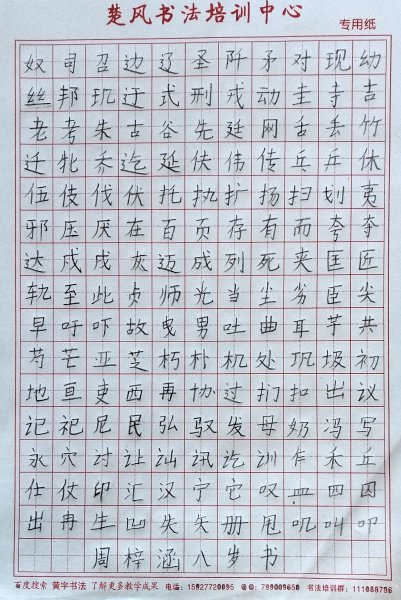 楚风书法培训中心
专用纸
奴司召边辽圣阡矛对现幼
丝邦玑迂式刑戎动圭寺吉
老考朱古谷先廷网舌丢竹
迁牝乔迄延伕伟传兵乒休
伍伎伐伏托执扩扬扫划夷
邪压厌在百页存有而夸夺
达戍戌灰迈成列死夹匡匠
轨至此贞师光当尘劣臣尖
早吁吓故曳男吐曲耳芋共
芍芒亚芝朽朴机处巩圾初
地亘吏西再协过扪扣出议
记祀尼民弘驭发母奶冯写
永穴讨让讪讯讫训乍禾丘
仕仗印汇汉宁它叹皿四囚
出冉生凹失矢册甩叽叫叩
周梓涵八岁书
百度搜索 黄宇书法 了解更多教学成果 电话：15927720095 QQ：799009650 书法培训群：111088796